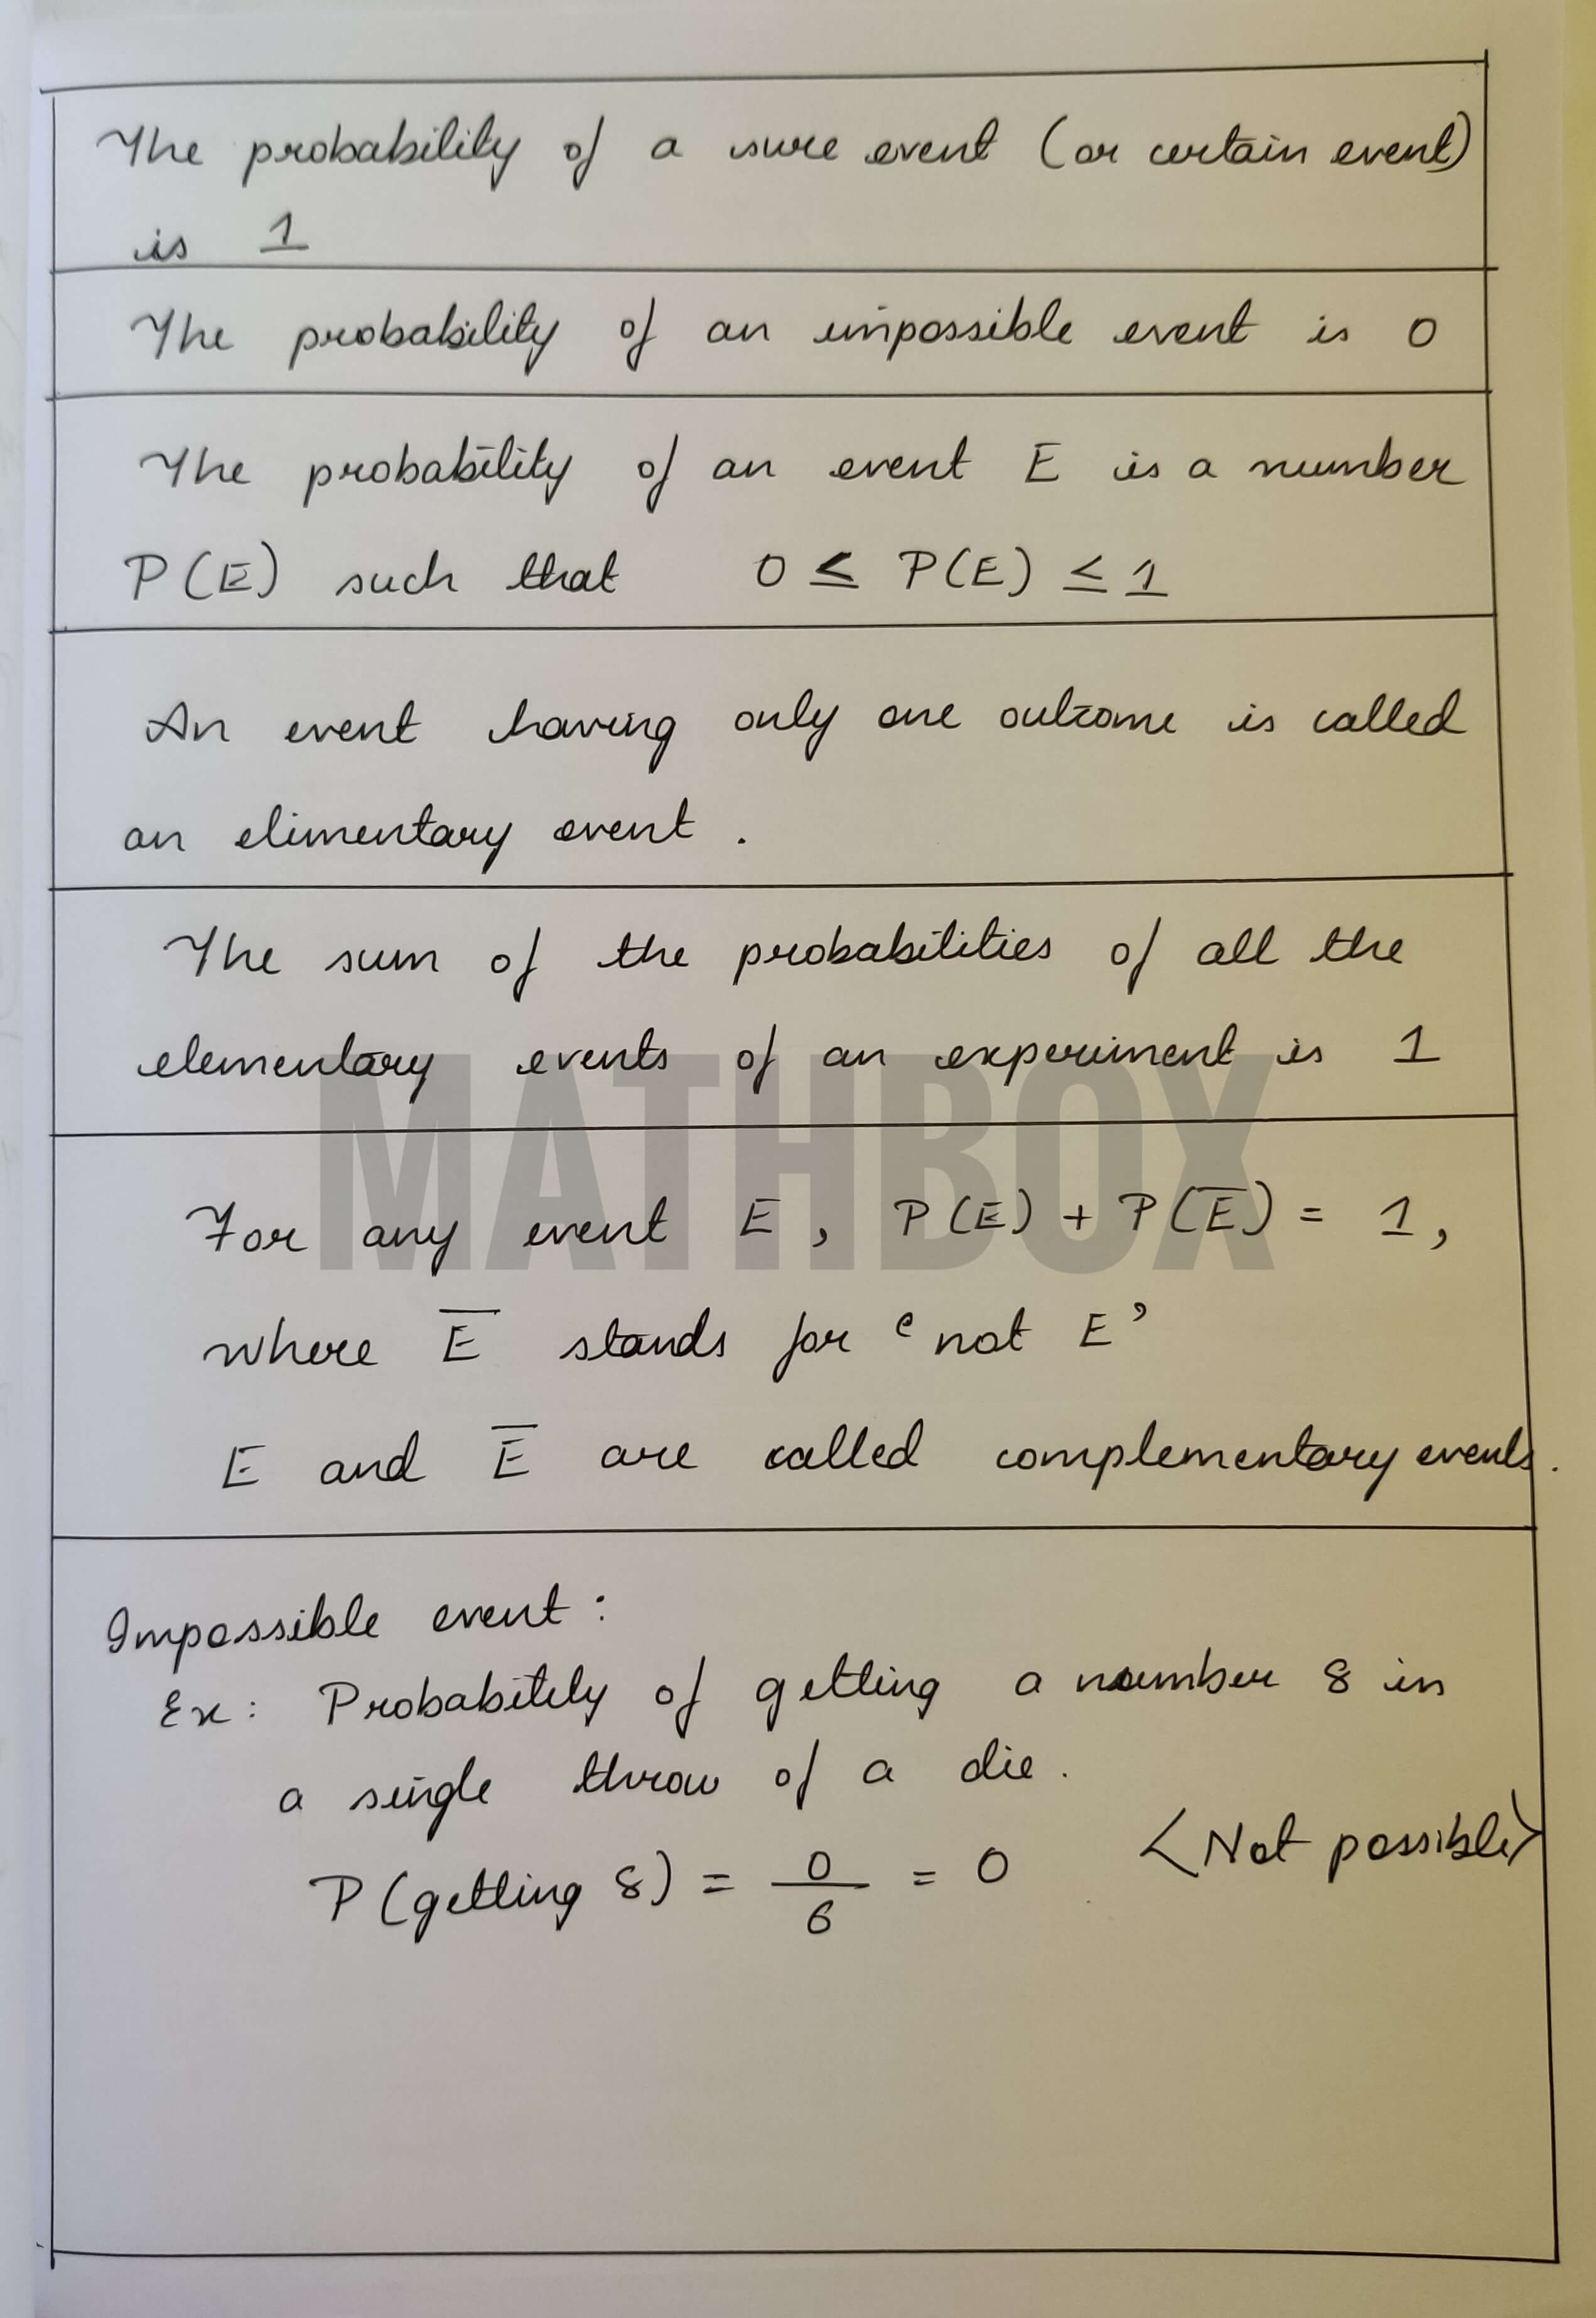 The probability of a sure event (or certain event)
is 1
The probability of an impossible event is 0
The probability of an event E is a number
P(E) such that 0 ≤ P(E) ≤ 1
An event having only one outcome is called
an elimentary event .
The sum of the probabilities of all the
elementary events of an experiment is 1
MATHBOX
For any event E , P(E) + P(E̅) = 1 ,
where E̅ stands for ‘not E’
E and E̅ are called complementary events.
Impossible event :
Ex : Probability of getting a number 8 in
a single throw of a die .
P(getting 8) = 0/6 = 0 <Not possible>